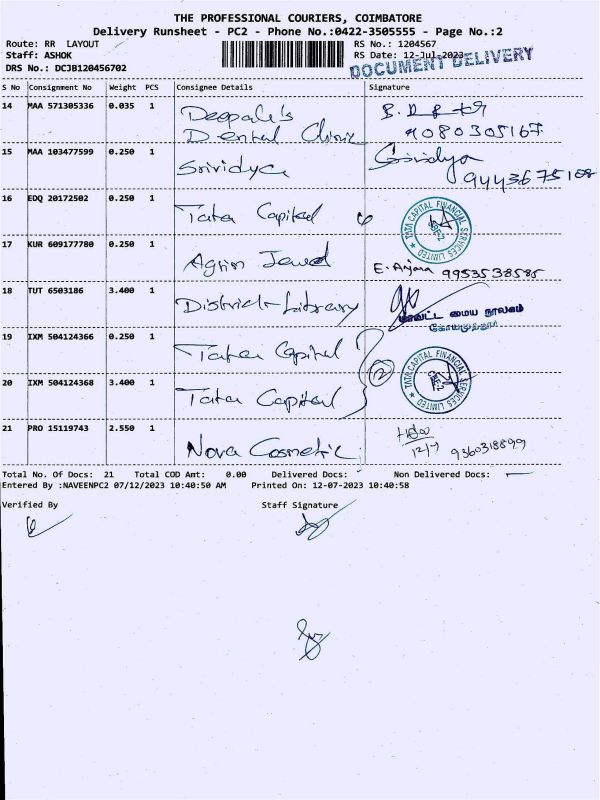 THE PROFESSIONAL COURIERS, COIMBATORE
Delivery Runsheet - PC2 - Phone No.:0422-3505555 - Page No.:2
Route: RR LAYOUT
RS No.: 1204567
Staff: ASHOK
RS Date: 12-Jul-2023
DRS No.: DCJB120456702
DOCUMENT DELIVERY
S No Consignment No Weight PCS Consignee Details Signature
14 MAA 571305336 0.035 1 Deepali's
Dental Clinic
9080305167
15 MAA 103477599 0.250 1 Srividya Srividya
9443675108
16 EDQ 20172502 0.250 1 Tata Capital TATA CAPITAL FINANCIAL SERVICES LIMITED
17 KUR 609177780 0.250 1 Agrin Jewed E. Anjana 9953538585
18 TUT 6503186 3.400 1 District Library மாவட்ட மைய நூலகம்
கோயமுத்தூர்
19 IXM 504124366 0.250 1 Tata Capital
20 IXM 504124368 3.400 1 Tata Capital 2 TATA CAPITAL FINANCIAL SERVICES LIMITED
21 PRO 15119743 2.550 1 Nova Cosmetic 12/7 9360318899
Total No. Of Docs: 21 Total COD Amt: 0.00 Delivered Docs: Non Delivered Docs:
Entered By :NAVEENPC2 07/12/2023 10:40:50 AM Printed On: 12-07-2023 10:40:58
Verified By Staff Signature